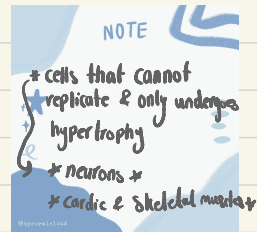 NOTE
* cells that cannot
replicate & only undergoes
hypertrophy
* neurons *
* cardic & skeletal muscles *